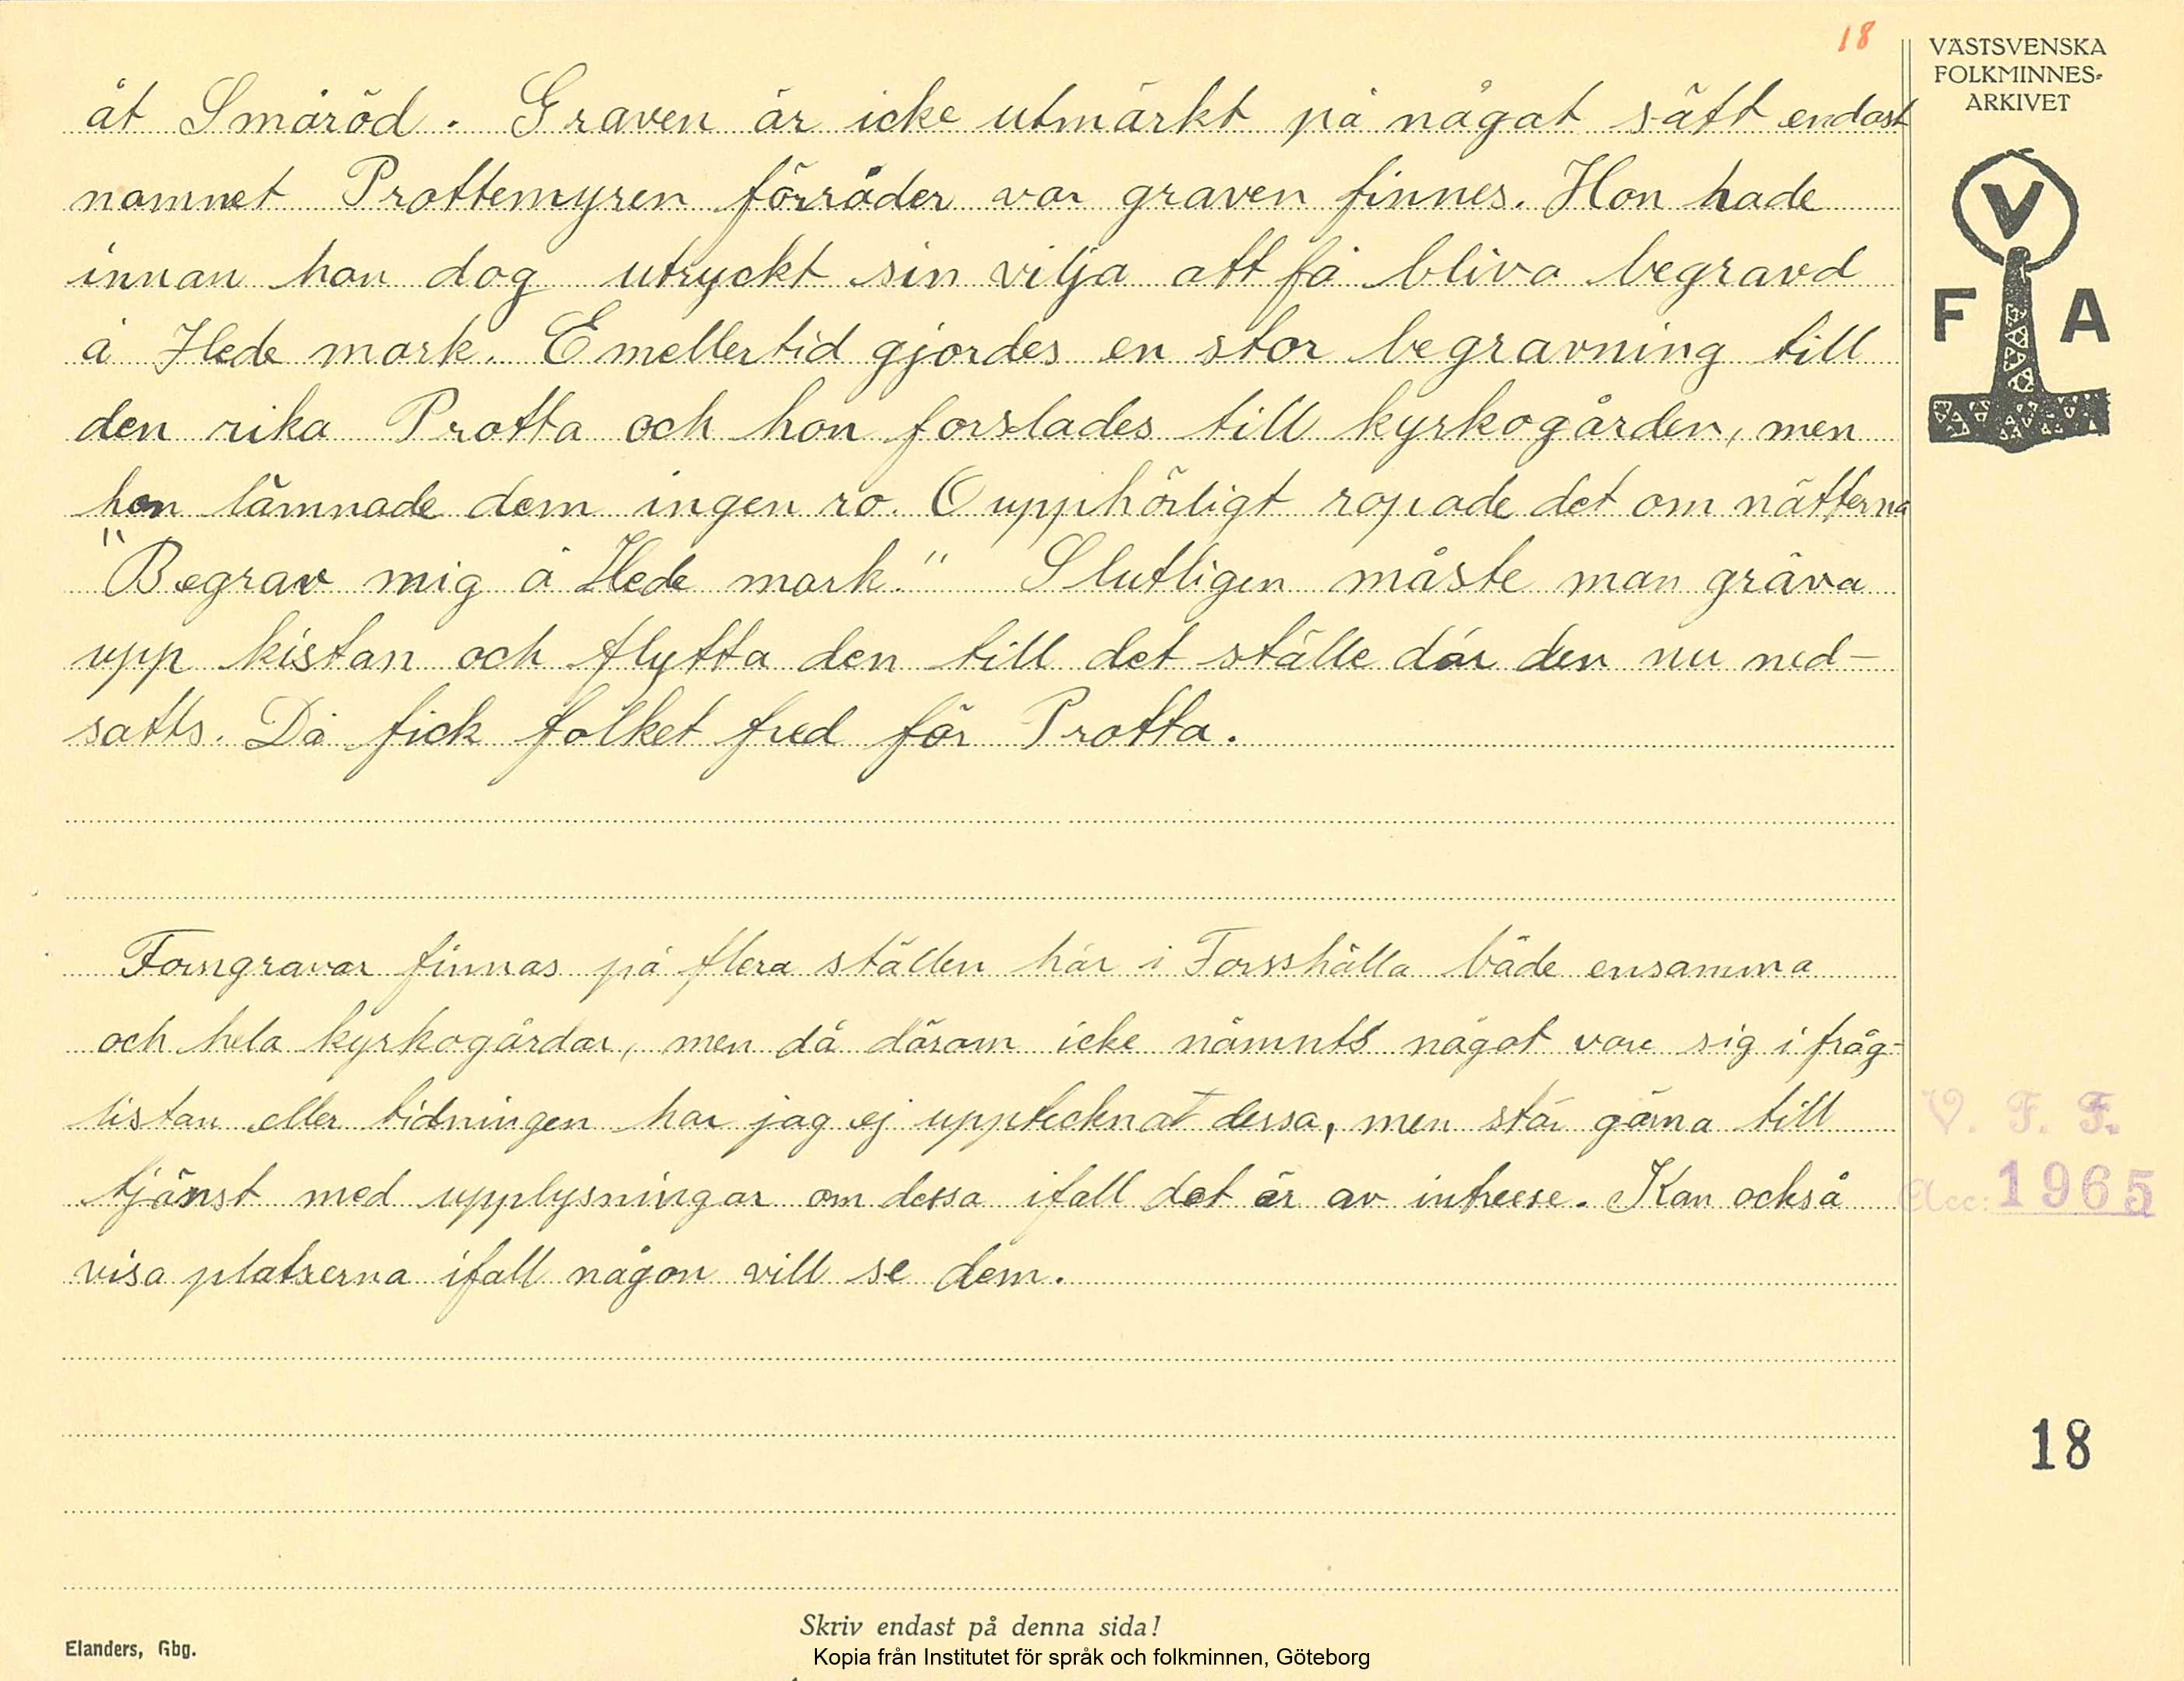 18
VÄSTSVENSKA
FOLKMINNES-
ARKIVET
V
F A
åt Smäröd. Graven är icke utmärkt på något sätt endast
namnet Prottemyren förråder var graven finnes. Hon hade
innan hon dog utryckt sin vilja att få bliva begravd
å Hede mark. Emellertid gjordes en stor begravning till
den rika Protta och hon forslades till kyrkogården, men
hon lämnade dem ingen ro. Oupphörligt ropade det om nätterna
"Begrav mig å Hede mark." Slutligen måste man gräva
upp kistan och flytta den till det ställe där den nu ned-
satts. Då fick folket fred för Protta.
Forngravar finnas på flera ställen här i Forsshälla både ensamma
och hela kyrkogårdar, men då därom icke nämnts något vare sig i fråg-
listan eller tidningen har jag ej upptecknat dessa, men står gärna till
tjänst med upplysningar om dessa ifall det är av intreese. Kan också
visa platserna ifall någon vill se dem.
V. F. F.
Acc: 1965
18
Skriv endast på denna sida!
Elanders, Gbg.
Kopia från Institutet för språk och folkminnen, Göteborg